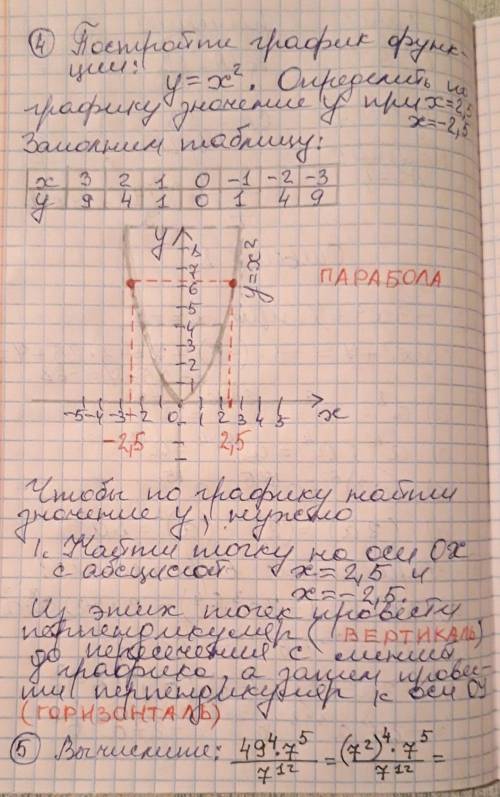 ④ Постройти график функ-
ции:
y=x². Определить по
графику значение y при x=2,5
x=-2,5
Заполним таблицу:
x 3 2 1 0 -1 -2 -3
y 9 4 1 0 1 4 9
y 8 7 6 5 4 3 2 1
y=x²
ПАРАБОЛА
-5 -4 -3 -2 0 1 2 3 4 5 x
-2,5 2,5
Чтобы по графику найти
значение y, нужно
1. Найти точку на оси OX
с абсциссой x=2,5 и
x=-2,5.
Из этих точек провести
перпендикуляр (ВЕРТИКАЛЬ)
до пересечения с линией
графика, а затем прове-
ти перпендикуляр к оси OY
(ГОРИЗОНТАЛЬ)
⑤ Вычислите: 49⁴·7⁵/7¹² = (7²)⁴·7⁵/7¹² =